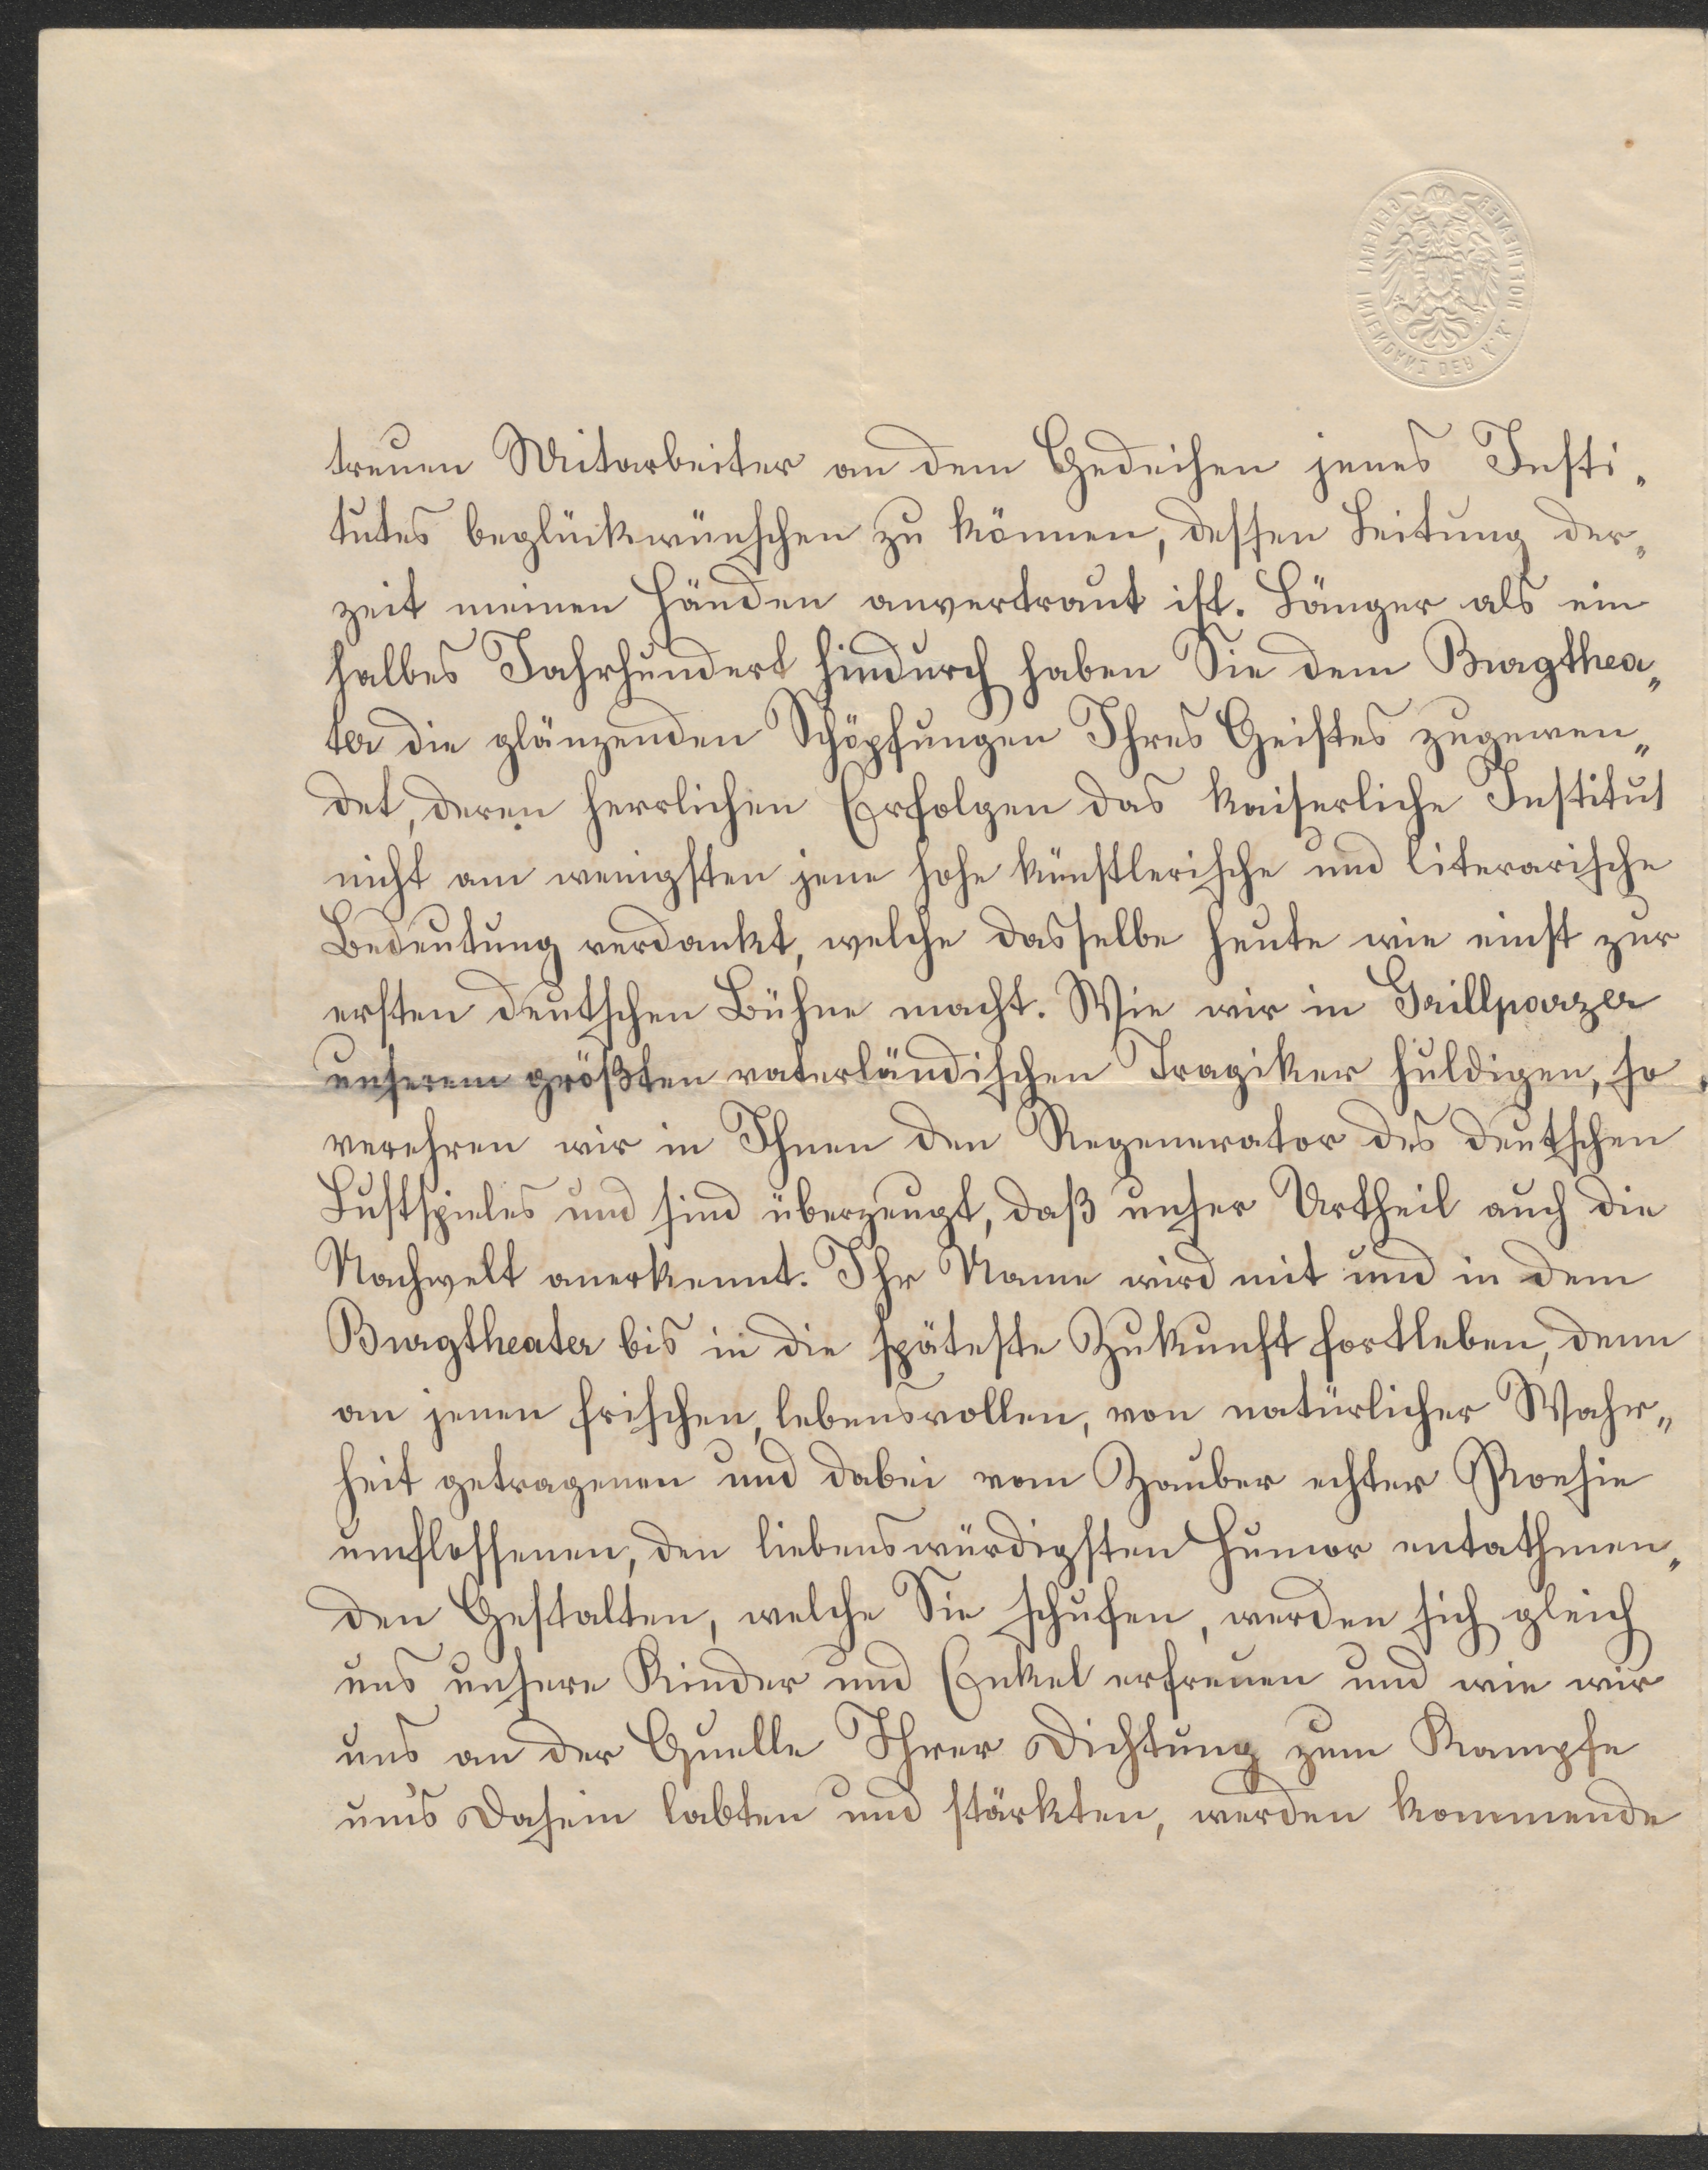 GENERAL INTENDANZ DER K.K. HOFTHEATER
treuen Mitarbeiter an dem Gedeihen jenes Insti„
tutes beglückwünschen zu können, dessen Leitung der„
zeit meinen Händen anvertraut ist. Länger als ein
halbes Jahrhundert hindurch haben Sie dem Burgthea„
ter die glänzenden Schöpfungen Ihres Geistes zugewen„
det, deren herrlichen Erfolgen das kaiserliche Institut
nicht am wenigsten jene hohe künstlerische und literarische
Bedeutung verdankt, welche dasselbe heute wie einst zur
ersten deutschen Bühne macht. Wie wir in Grillparzer
unserem größten vaterländischen Tragiker huldigen, so
verehren wir in Ihnen den Regenerator des deutschen
Lustspieles und sind überzeugt, daß unser Urtheil auch die
Nachwelt anerkennt. Ihr Name wird mit und in dem
Burgtheater bis in die späteste Zukunft fortleben, denn
an jenen frischen, lebensvollen, von natürlicher Wahr„
heit getragenen und dabei vom Zauber echter Poesie
umflossenen, den liebenswürdigsten Humor entathmen„
den Gestalten, welche Sie schufen, werden sich gleich
uns unsere Kinder und Enkel erfreuen und wie wir
uns an der Quelle Ihrer Dichtung zum Kampfe
um's Dasein labten und stärkten, werden kommende